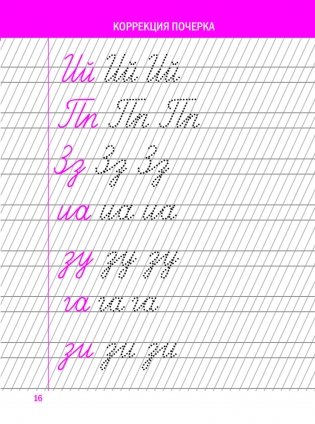 КОРРЕКЦИЯ ПОЧЕРКА
Ий Ий Ий
Пп Пп Пп
Зз Зз Зз
иа иа иа
зу зу зу
га га га
зи зи зи
16